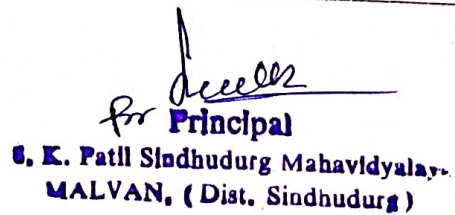 for Principal
S. K. Patil Sindhudurg Mahavidyalay
MALVAN, (Dist. Sindhudurg)